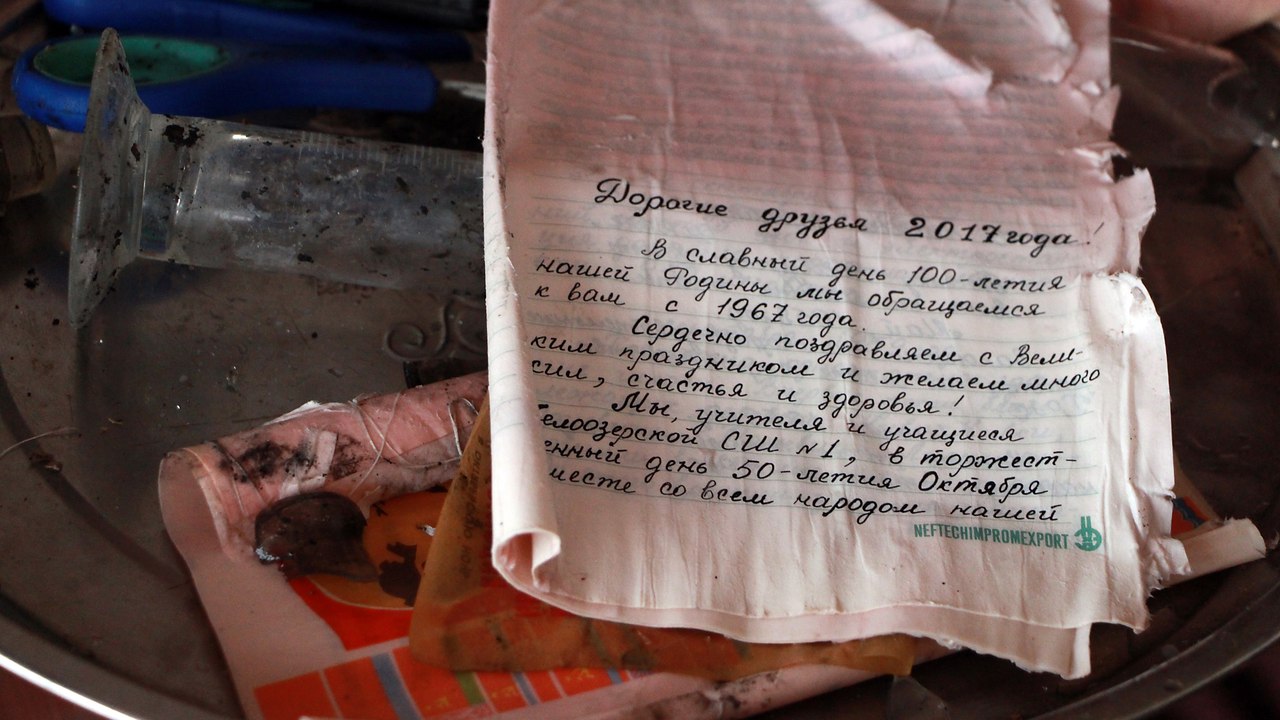 Дорогие друзья 2017 года!
В славный день 100-летия
нашей Родины мы обращаемся
к вам с 1967 года.
Сердечно поздравляем с Вели-
ким праздником и желаем много
сил, счастья и здоровья!
Мы, учителя и учащиеся
елоозерской СШ №1, в торжест-
енный день 50-летия Октября
месте со всем народом нашей
NEFTECHIMPROMEXPORT